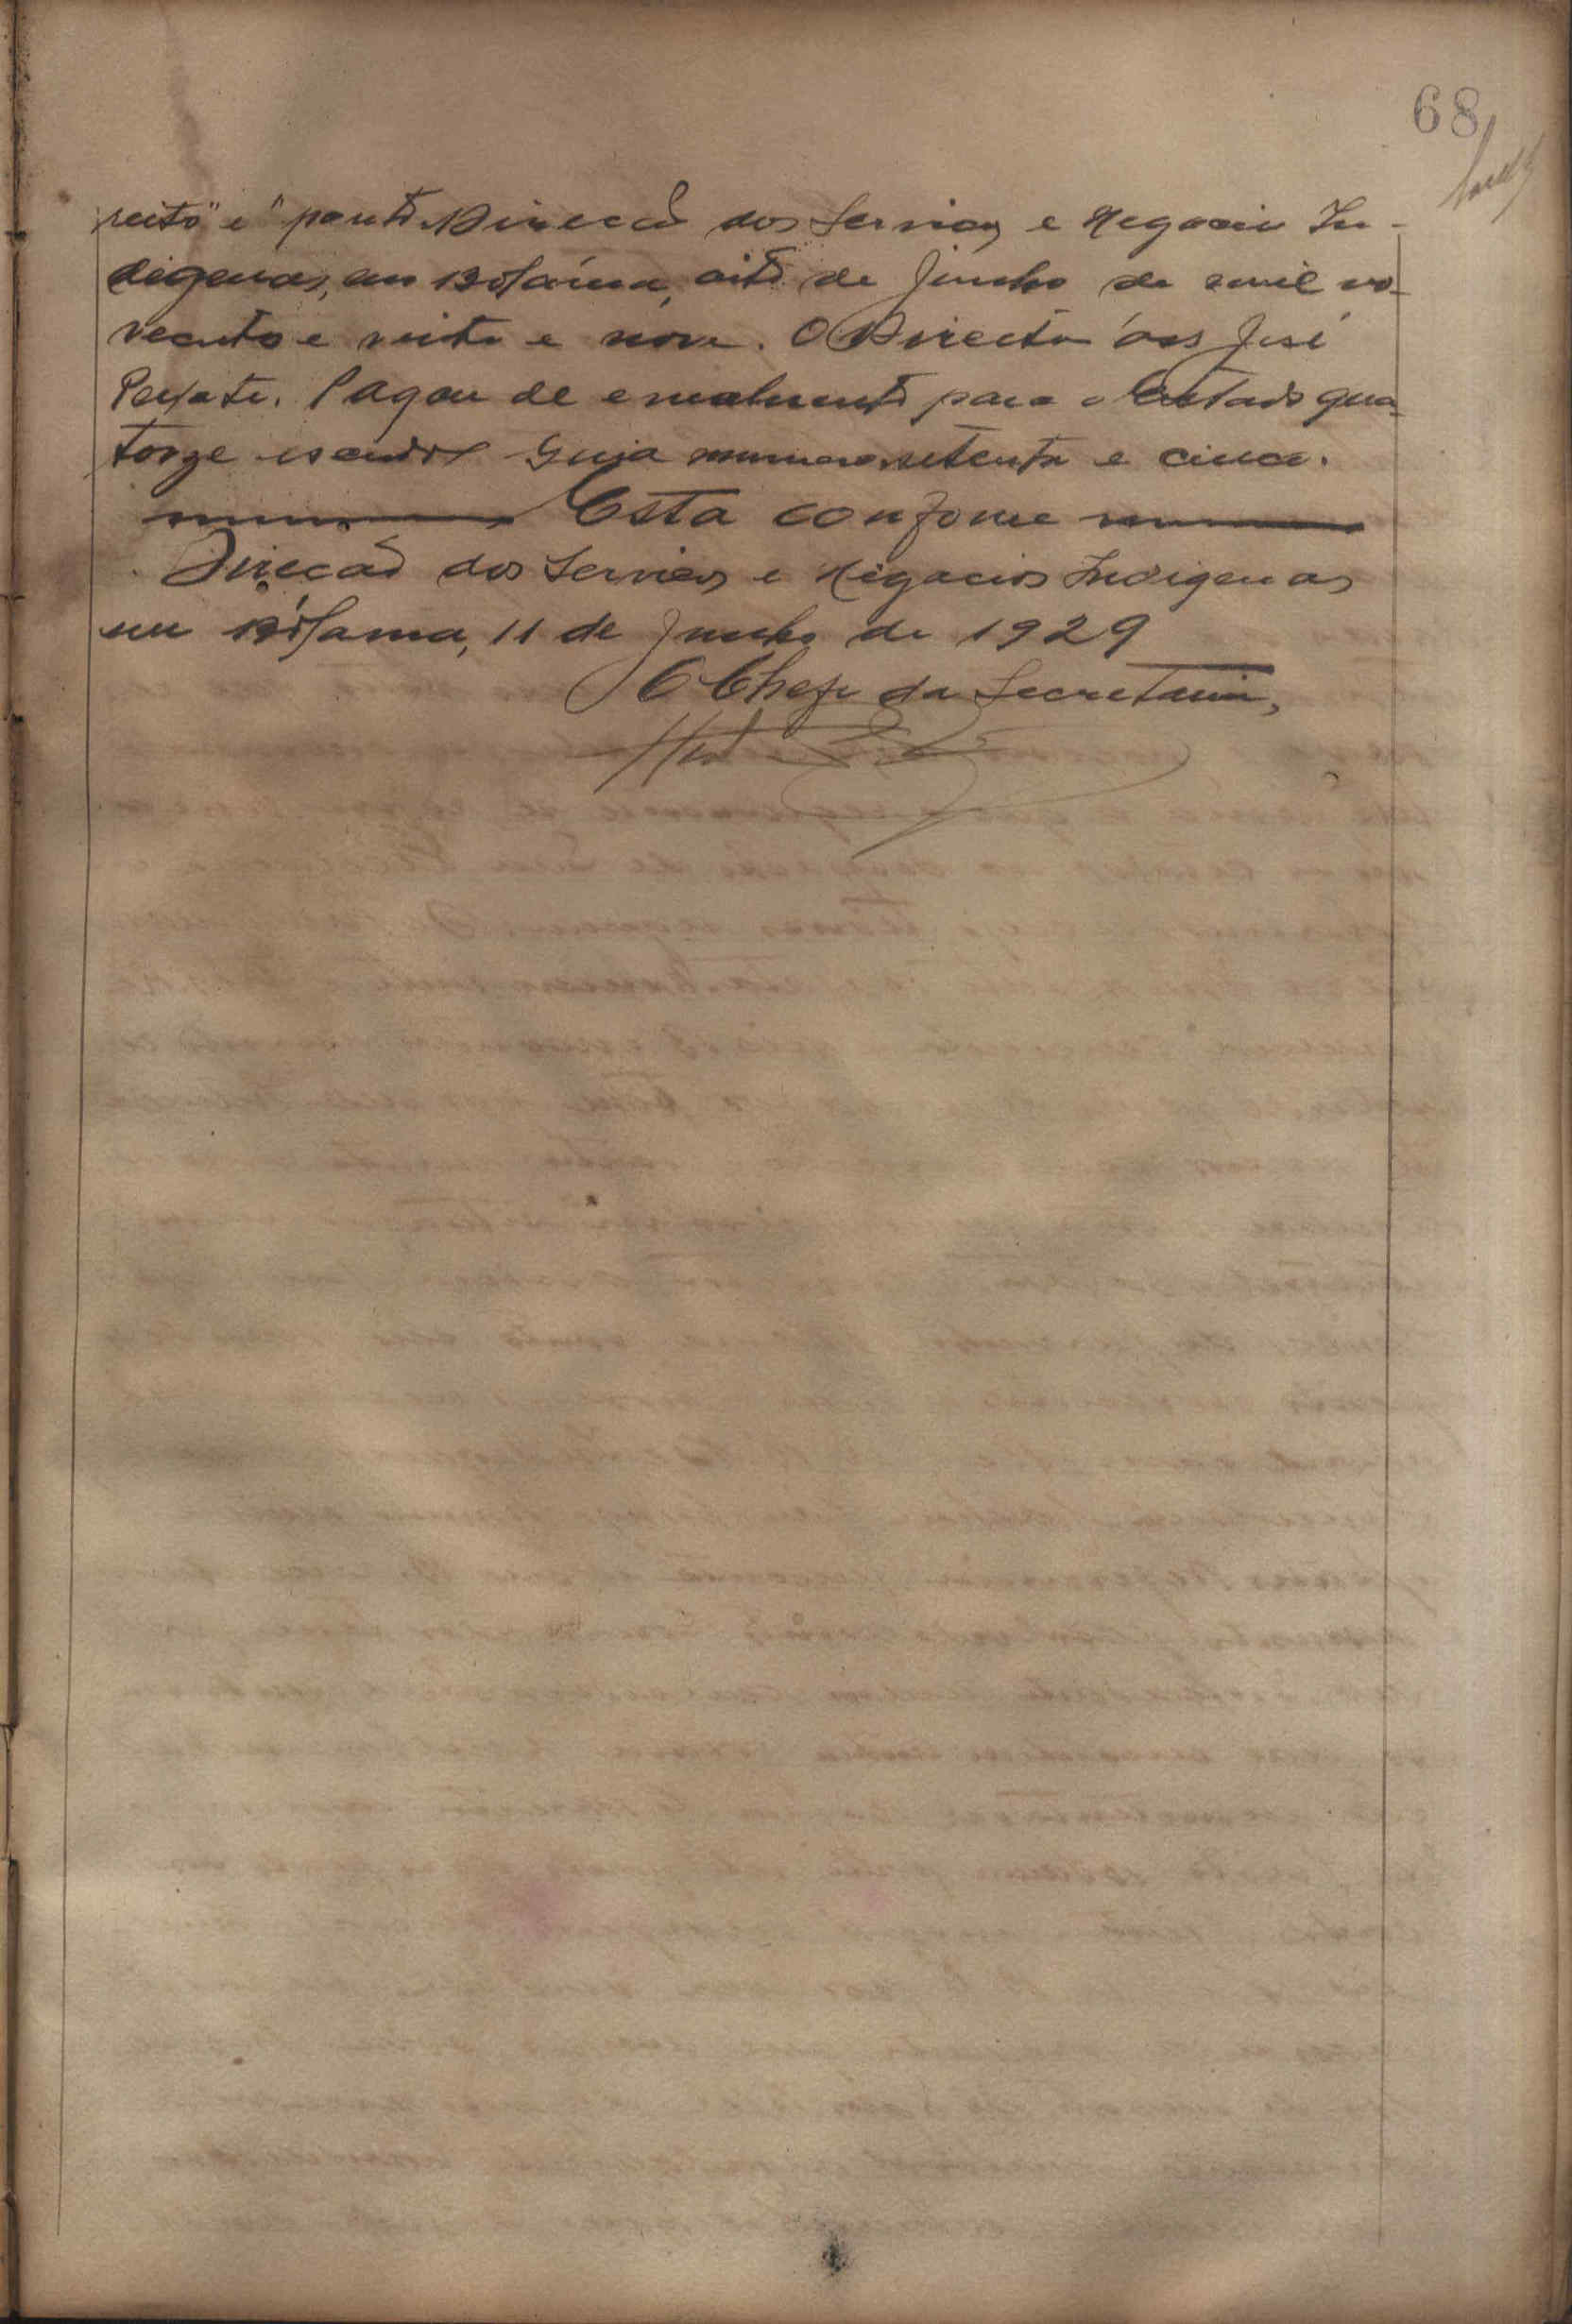 68
reito" e "ponto. Direcção dos Serviços e Negocios In-
digenas, em Bolama, oito de Junho de mil no-
vecentos e vinte e nove. O Director (as) José
Peixoto. Pagou de emolumento para o Estado qua-
torze escudos Guia numero setenta e cinco.
Está conforme
Direcção dos Serviços e Negocios Indigenas
em Bolama, 11 de Junho de 1929
O Chefe da Secretaria,